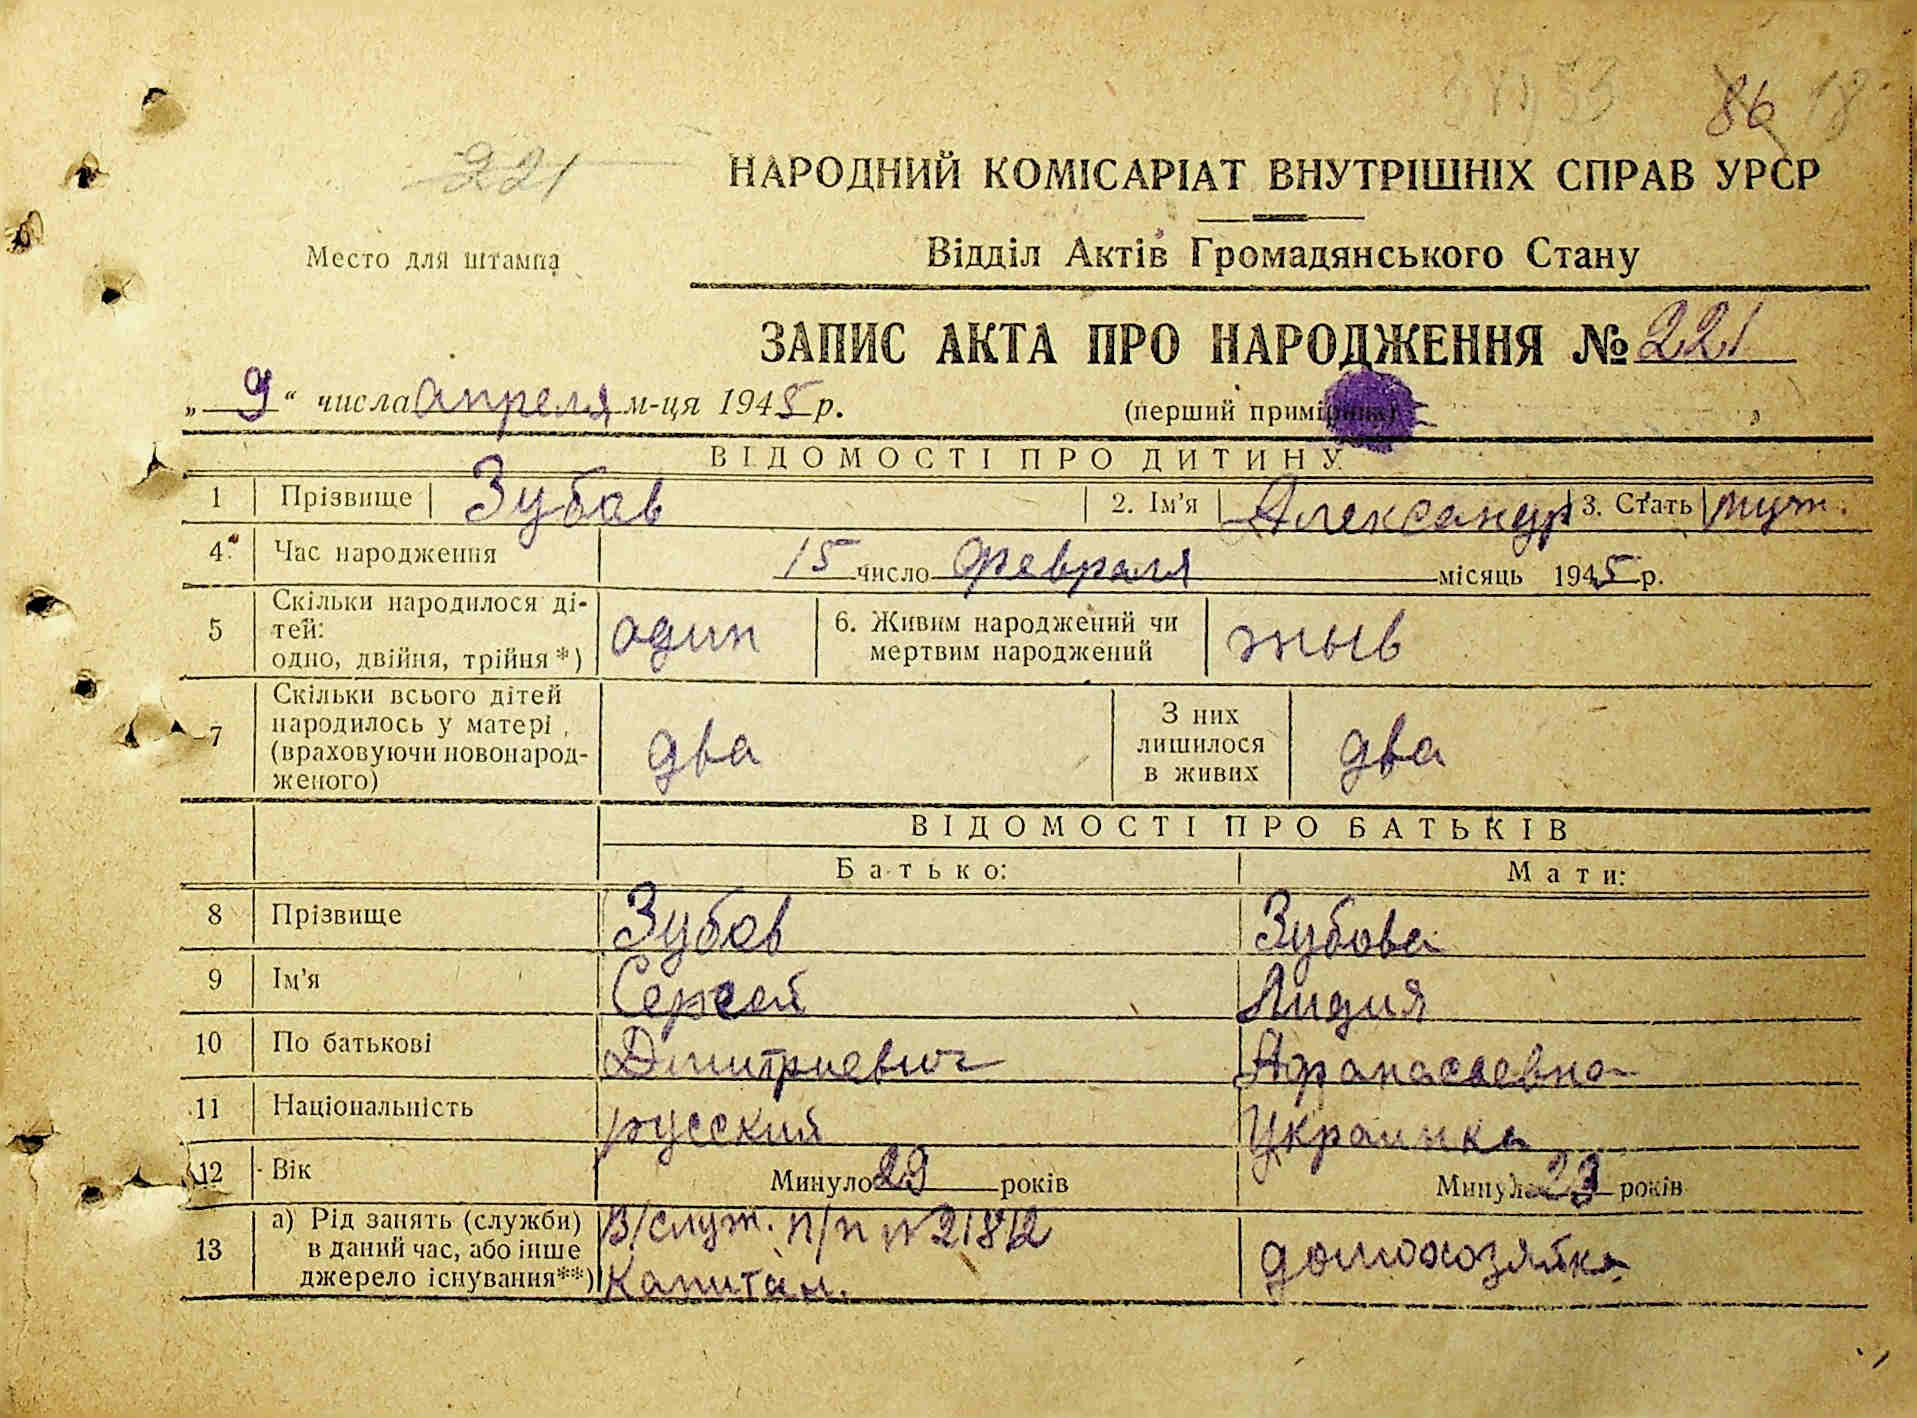 86 18
221
НАРОДНИЙ КОМІСАРІАТ ВНУТРІШНІХ СПРАВ УРСР
Место для штампа
Відділ Актів Громадянського Стану
ЗАПИС АКТА ПРО НАРОДЖЕННЯ № 221
„9“ числа апреля м-ця 1945 р.
(перший примірник)
ВІДОМОСТІ ПРО ДИТИНУ
1 Прізвище Зубов 2. Ім’я Александр 3. Стать муж.
4. Час народження 15 число февраля місяць 1945 р.
5 Скільки народилося ді-
тей:
одно, двійня, трійня*) один 6. Живим народжений чи
мертвим народжений жыв
7 Скільки всього дітей
народилось у матері
(враховуючи новонарод-
женого) два З них
лишилося
в живих два
ВІДОМОСТІ ПРО БАТЬКІВ
Батько: Мати:
8 Прізвище Зубов Зубова
9 Ім’я Сергей Лидия
10 По батькові Дмитриевич Афанасьевна
11 Національність русский Украинка
12 Вік Минуло 29 років Минуло 23 років
13 а) Рід занять (служби)
в даний час, або інше
джерело існування**) В/служ. п/п №21812
Капитан. домохозяйка